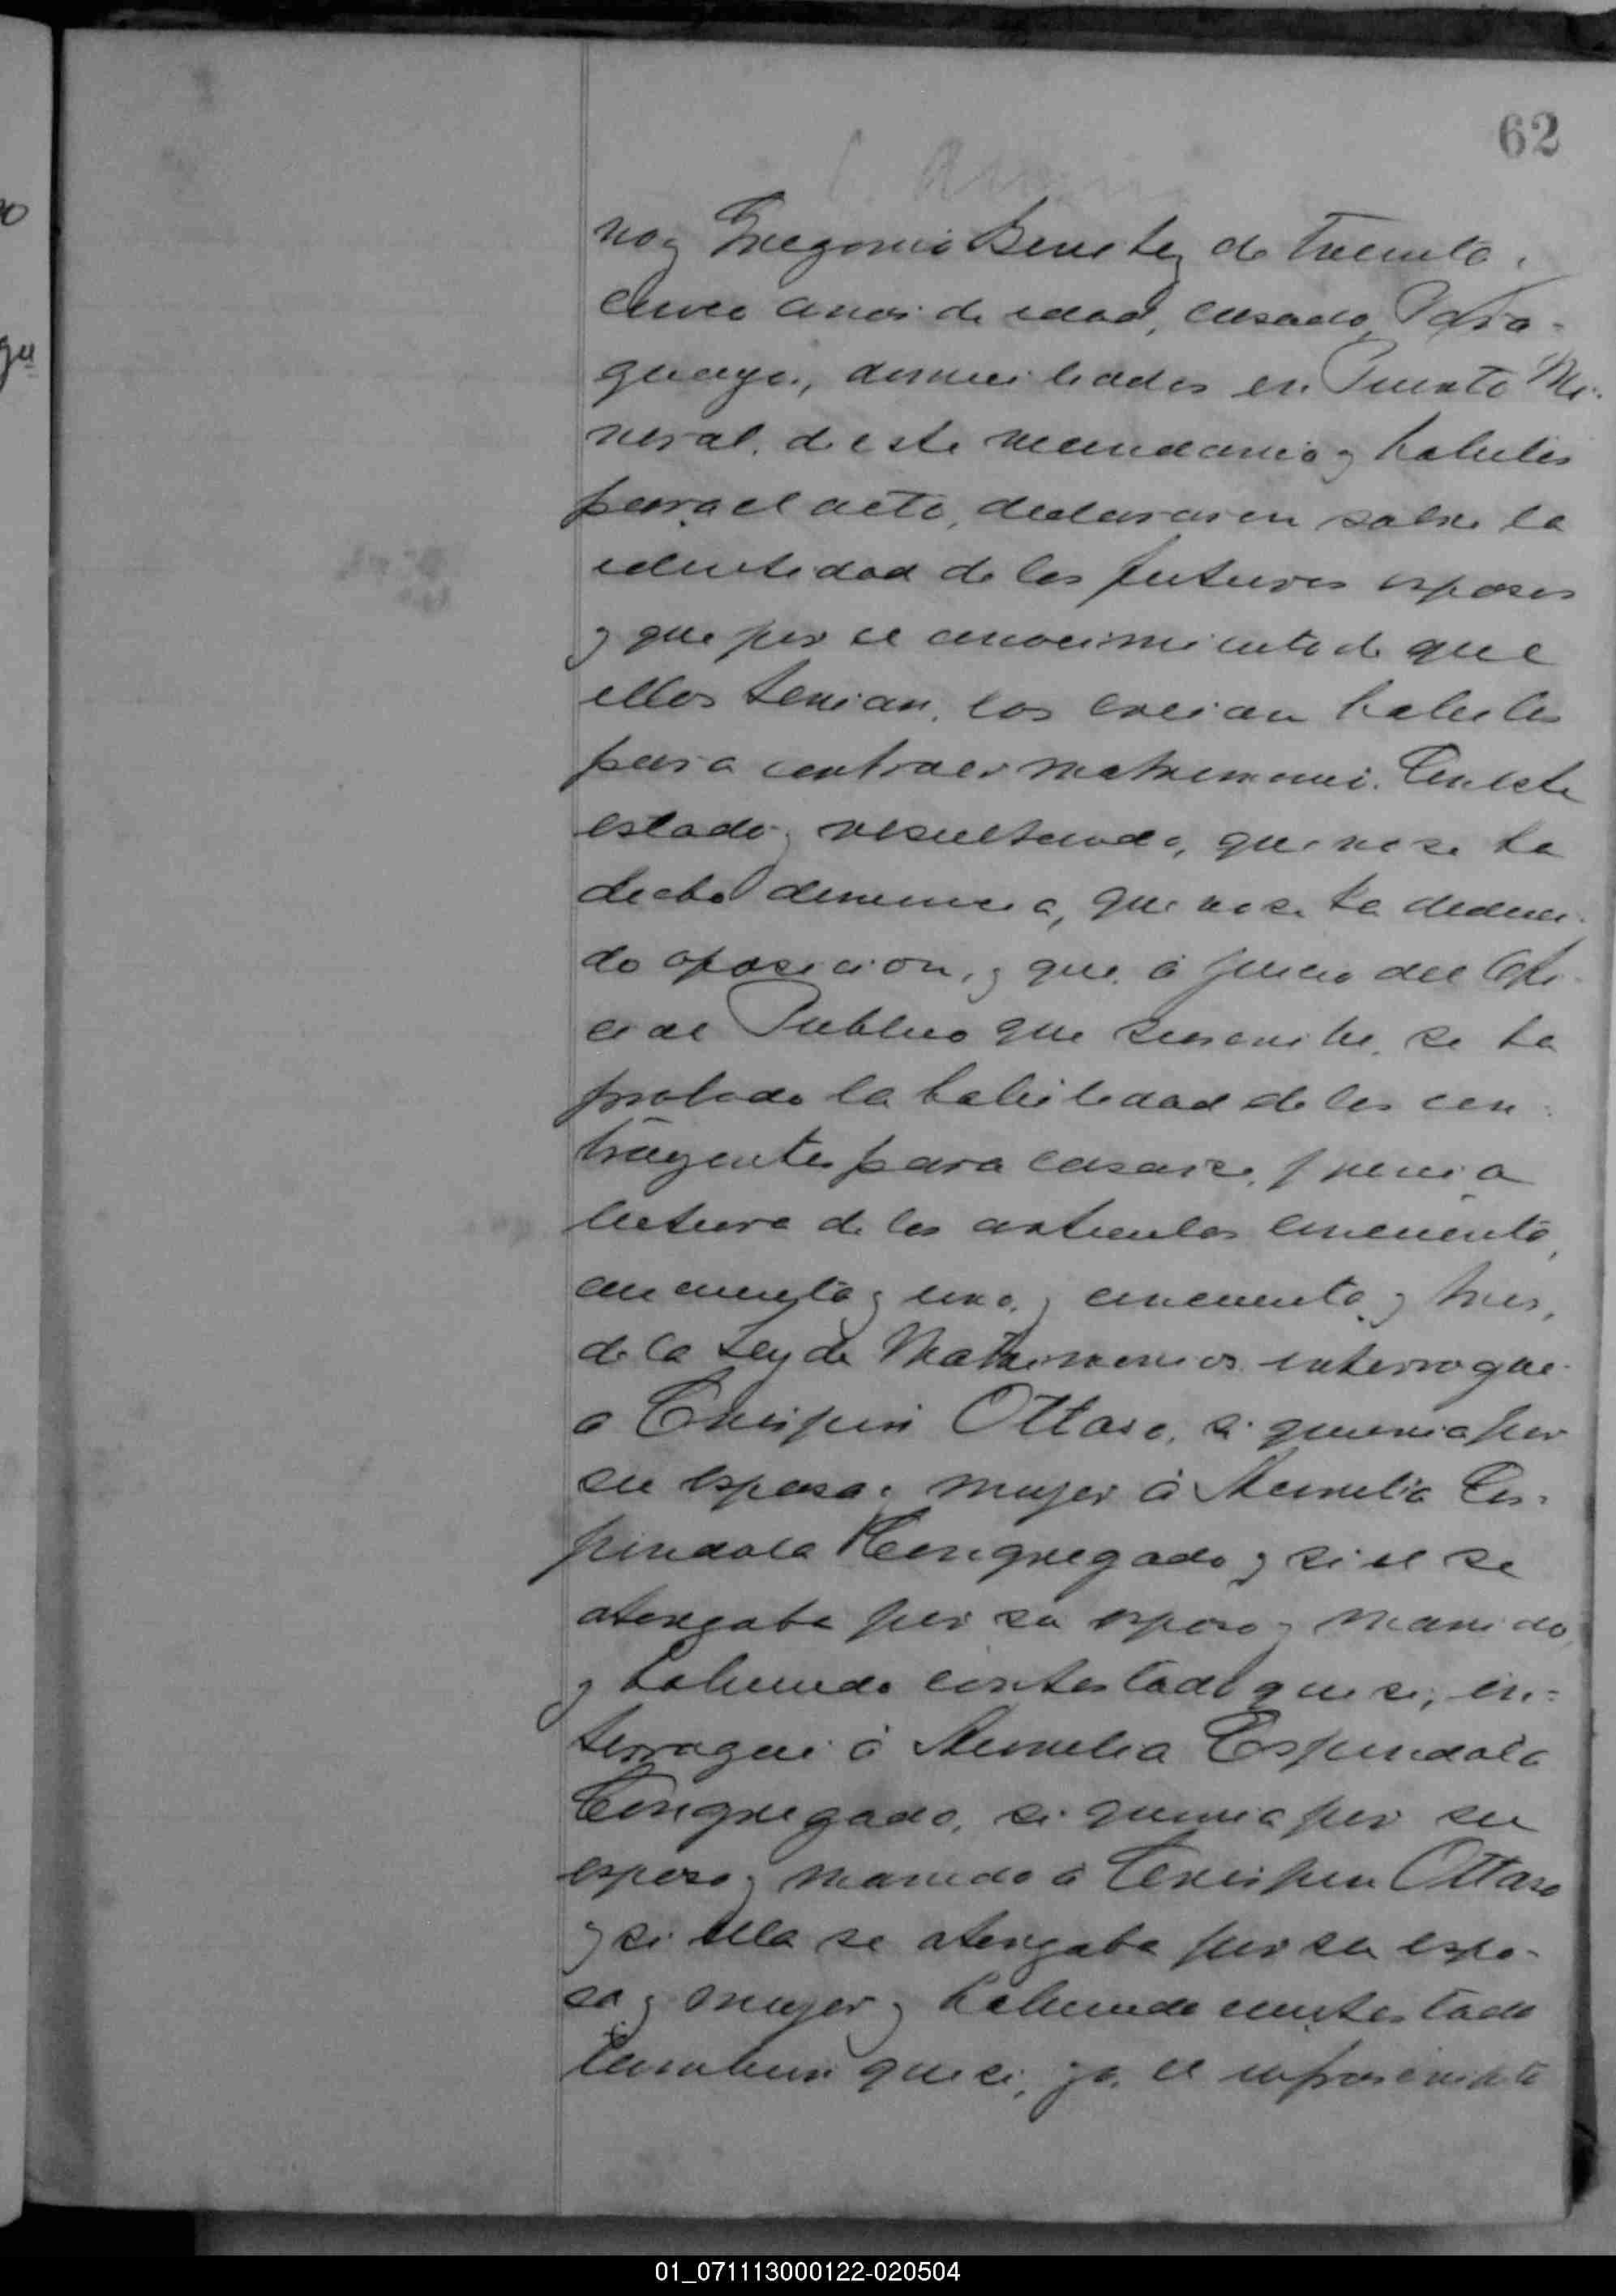 62
no y Gregorio Benitez de treinta
cinco anos de edad, casado, Para-
guayo, domiciliados en Puerto Mi-
neral, de este vecindario y habiles
para el acto, declararon sobre la
identidad de los futuros esposos
y que por el conocimiento de que
ellos tenian, los creian habiles
para contraer matrimonio. En este
estado y resultando, que no se ha
hecho denuncia, que no se ha deduci-
do oposicion, y que á juicio del Ofi-
cial Publico que suscribe, se ha
probado la habilidad de los con-
trayentes para casarse, previa
lectura de los articulos cincuenta,
cincuenta y uno, y cincuenta y tres,
de la Ley de Matrimonios interrogué
a Crispin Ottaso, si queria por
su esposa y mujer á Aemelia Es-
pindola Congregado y si el se
otorgaba por su esposo y marido,
y habiendo contestado que si, in-
terrogué á Aemelia Espindola
Congregado, si queria por su
esposo y marido á Crispin Ottaso
y si ella se otorgaba por su espo-
sa y mujer y habiendo contestado
tambien que si, yo, el infrascripto
01_071113000122-020504